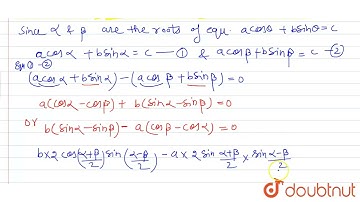 since α & β are the roots of equ. acosθ + bsinθ = c
acosα + bsinα = c —① & acosβ + bsinβ = c —②
eqn ① - ②
(acosα + bsinα) - (acosβ + bsinβ) = 0
a(cosα - cosβ) + b(sinα - sinβ) = 0
or b(sinα - sinβ) - a(cosβ - cosα) = 0
b×2 cos(α+β/2) sin(α-β/2) - a × 2 sin α+β/2 × sin α-β/2
doubtnut